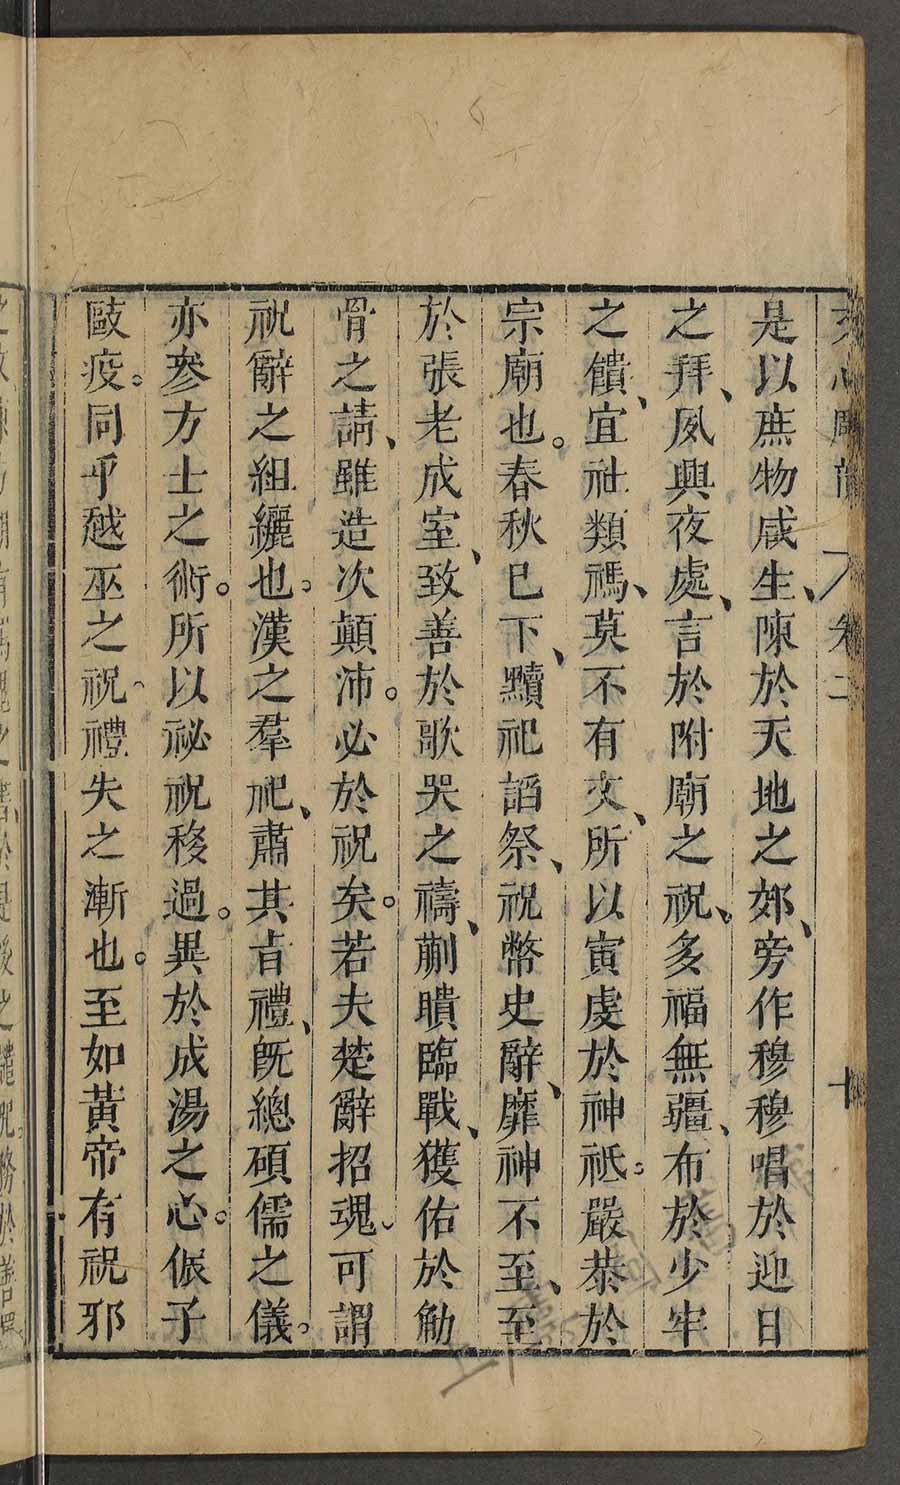 文心雕龍 卷二 十
是以庶物咸生、陳於天地之郊、旁作穆穆唱於迎日
之拜、夙興夜處、言於附廟之祝、多福無疆、布於少牢
之饋、宜社類禡、莫不有文、所以寅虔於神祇。嚴恭於
宗廟也。春秋已下、黷祀諂祭、祝幣史辭、靡神不至、至
於張老成室、致善於歌哭之禱、蒯聵臨戰、獲佑於觔
骨之請、雖造次顛沛。必於祝矣。若夫楚辭招魂、可謂
祝辭之組纚也。漢之羣祀、肅其㫖禮、旣總碩儒之儀。
亦參方士之術。所以祕祝移過。異於成湯之心。侲子
敺疫。同乎越巫之祝。禮失之漸也。至如黃帝有祝邪